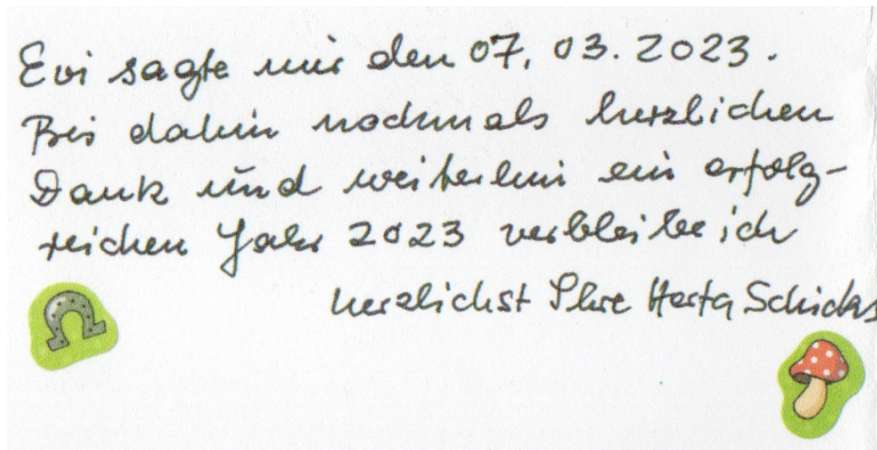 Evi sagte mir den 07. 03. 2023.
Bis dahin nochmals herzlichen
Dank und weiterhin ein erfolg-
reichen Jahr 2023 verbleibe ich
herzlichst Ihre Herta